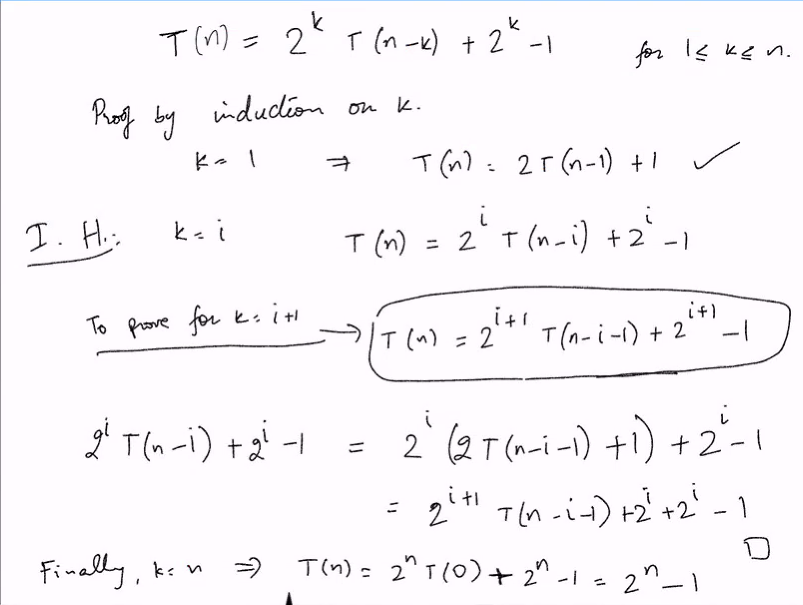 T(n) = 2^k T(n-k) + 2^k - 1 for 1 ≤ k ≤ n.
Proof by induction on k.
k = 1 ⇒ T(n) = 2T(n-1) + 1 ✓
I. H.: k = i T(n) = 2^i T(n-i) + 2^i - 1
To prove for k = i+1 → T(n) = 2^{i+1} T(n-i-1) + 2^{i+1} - 1
2^i T(n-i) + 2^i - 1 = 2^i (2T(n-i-1) + 1) + 2^i - 1
= 2^{i+1} T(n-i-1) + 2^i + 2^i - 1 □
Finally, k = n ⇒ T(n) = 2^n T(0) + 2^n - 1 = 2^n - 1